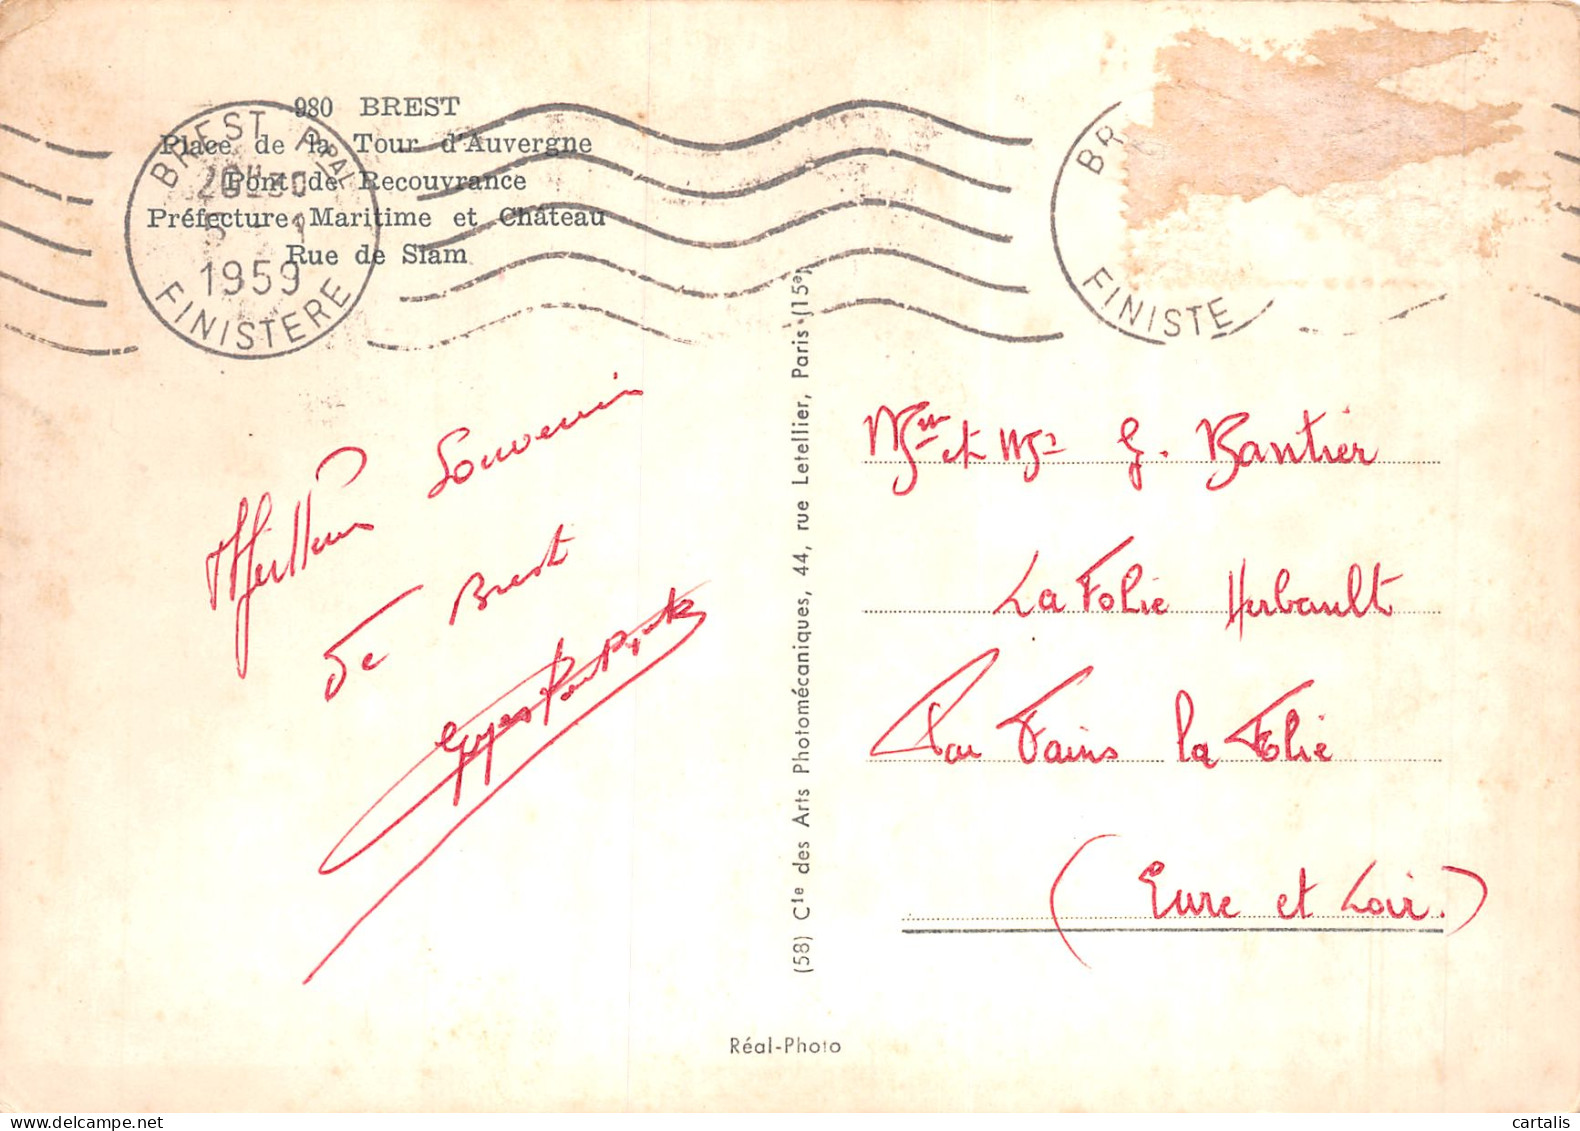 980 BREST
Place de la Tour d'Auvergne
Pont de Recouvrance
Préfecture Maritime et Château
Rue de Siam
BREST PPAL
1959
FINISTERE
BR
FINISTE
Meilleur Souvenir
de Brest
(58) Cie des Arts Photomécaniques, 44, rue Letellier, Paris (15e)
et G. Bantier
La Folie Herbault
Par Fains la Folie
(Eure et Loir.)
Réal-Photo
www.delcampe.net
cartalis